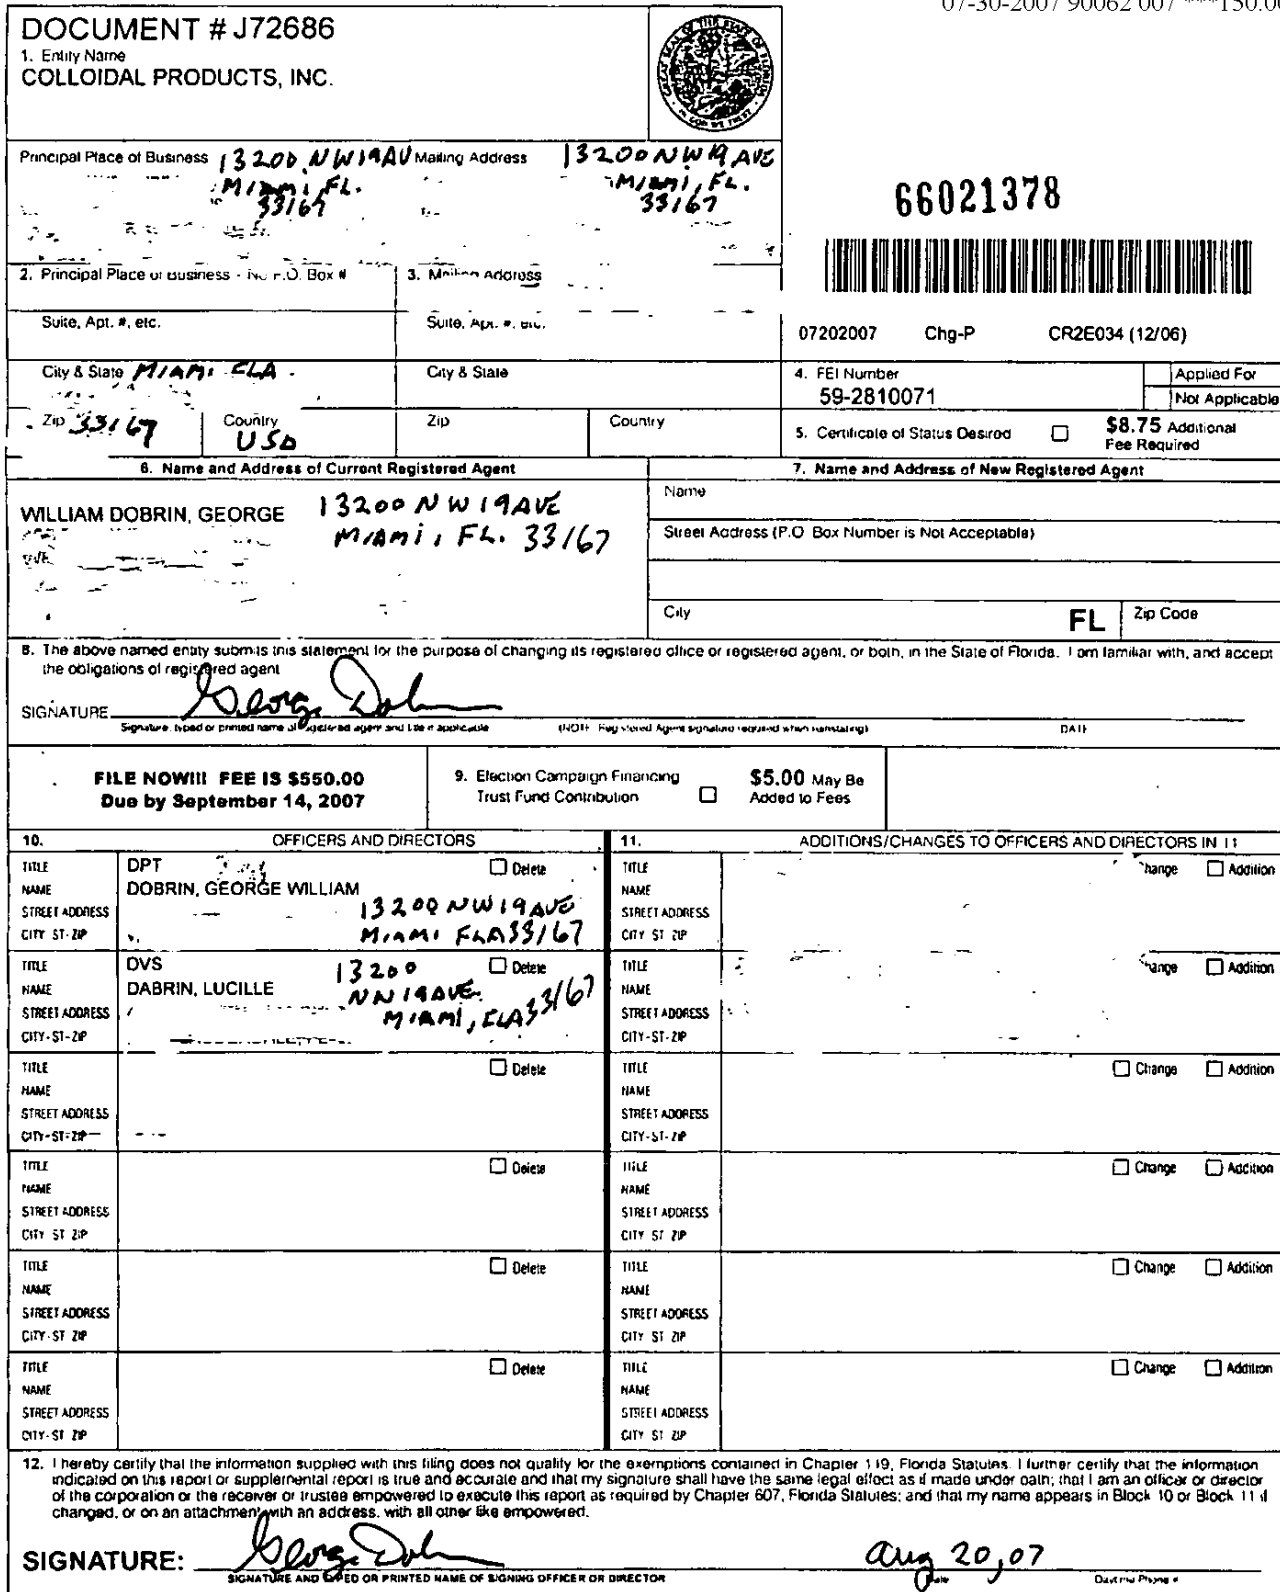 07-30-2007 90062 007 ***150.00
DOCUMENT # J72686
1. Entity Name
COLLOIDAL PRODUCTS, INC.
GREAT SEAL OF THE STATE OF FLORIDA
IN GOD WE TRUST
Principal Place of Business 13200 NW 19 AV
MIAMI, FL.
33167
Mailing Address 13200 NW 19 AVE
MIAMI, FL.
33167
66021378
2. Principal Place of Business - No P.O. Box #
3. Mailing Address
Suite, Apt. #, etc.
Suite, Apt. #, etc.
07202007 Chg-P CR2E034 (12/06)
City & State MIAMI FLA
City & State
4. FEI Number
59-2810071
Applied For
Not Applicable
Zip 33167
Country
USA
Zip
Country
5. Certificate of Status Desired
$8.75 Additional
Fee Required
6. Name and Address of Current Registered Agent
7. Name and Address of New Registered Agent
WILLIAM DOBRIN, GEORGE 13200 NW 19 AVE
MIAMI, FL. 33167
Name
Street Address (P.O. Box Number is Not Acceptable)
City FL Zip Code
8. The above named entity submits this statement for the purpose of changing its registered office or registered agent, or both, in the State of Florida. I am familiar with, and accept
the obligations of registered agent
SIGNATURE
Signature, typed or printed name of registered agent and title if applicable (NOTE Registered Agent signature required when reinstating) DATE
FILE NOW!!! FEE IS $550.00
Due by September 14, 2007
9. Election Campaign Financing
Trust Fund Contribution
$5.00 May Be
Added to Fees
10. OFFICERS AND DIRECTORS
11. ADDITIONS/CHANGES TO OFFICERS AND DIRECTORS IN 11
TITLE DPT Delete
NAME DOBRIN, GEORGE WILLIAM
STREET ADDRESS 13200 NW 19 AVE
CITY ST-ZIP MIAMI FLA 33167
TITLE hange Addition
NAME
STREET ADDRESS
CITY ST ZIP
TITLE DVS 13200 Delete
NAME DABRIN, LUCILLE NN 19 AVE.
STREET ADDRESS MIAMI, FLA 33167
CITY-ST-ZIP
TITLE hange Addition
NAME
STREET ADDRESS
CITY-ST-ZIP
TITLE Delete
NAME
STREET ADDRESS
CITY-ST-ZIP
TITLE Change Addition
NAME
STREET ADDRESS
CITY-ST-ZIP
TITLE Delete
NAME
STREET ADDRESS
CITY ST ZIP
TITLE Change Addition
NAME
STREET ADDRESS
CITY ST ZIP
TITLE Delete
NAME
STREET ADDRESS
CITY-ST ZIP
TITLE Change Addition
NAME
STREET ADDRESS
CITY ST ZIP
TITLE Delete
NAME
STREET ADDRESS
CITY-ST ZIP
TITLE Change Addition
NAME
STREET ADDRESS
CITY ST ZIP
12. I hereby certify that the information supplied with this filing does not qualify for the exemptions contained in Chapter 119, Florida Statutes. I further certify that the information
indicated on this report or supplemental report is true and accurate and that my signature shall have the same legal effect as if made under oath; that I am an officer or director
of the corporation or the receiver or trustee empowered to execute this report as required by Chapter 607, Florida Statutes; and that my name appears in Block 10 or Block 11 if
changed, or on an attachment with an address, with all other like empowered.
SIGNATURE: Aug 20, 07
SIGNATURE AND TYPED OR PRINTED NAME OF SIGNING OFFICER OR DIRECTOR Date Daytime Phone #